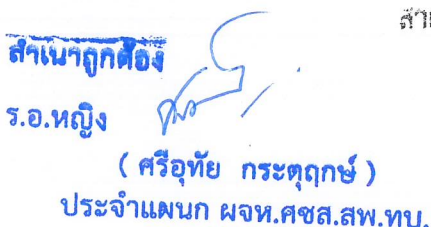 สำเนาถูกต้อง
ร.อ.หญิง
( ศรีอุทัย กระตุฤกษ์ )
ประจำแผนก ผจห.ศซส.สพ.ทบ.